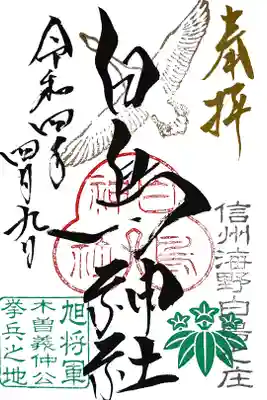 奉拝
信州海野白鳥之庄
白鳥神社
白鳥神社
令和四年
四月九日
旭将軍
木曽義仲公
挙兵之地